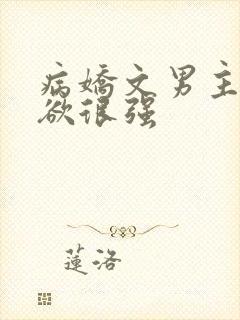 病嬌文男主
欲很强
蓮洛